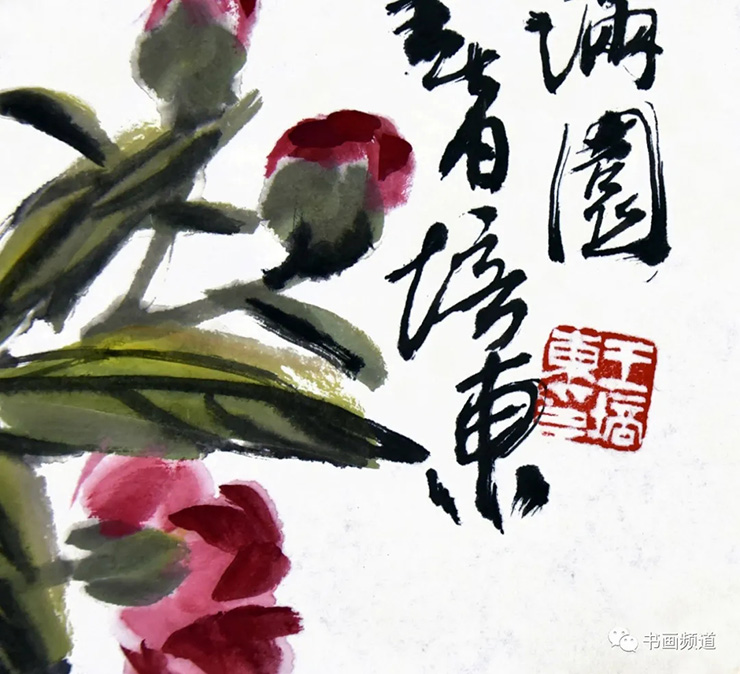 满園
培東
王培
東印
书画频道